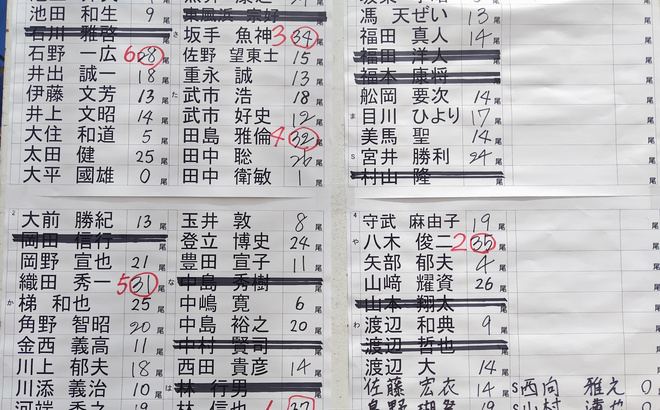 池田 和生 9尾
石川 雅啓
石野 一広 6 28尾
井出 誠一 18尾
伊藤 文芳 13尾
井上 文昭 14尾
大住 和道 5尾
太田 健 25尾
大平 國雄 0尾
さ 坂手 魚神 3 34尾
佐野 望東士 15尾
重永 誠 13尾
た 武市 浩 18尾
武市 好史 12尾
田島 雅倫 4 32尾
田中 聡 26尾
田中 衛敏 1尾
馮 天ぜい 13尾
福田 真人 14尾
福田 洋人
福本 康将
舩岡 要次 14尾
ま 目川 ひより 17尾
美馬 聖 14尾
S 宮井 勝利 24尾
村山 隆 尾
2 大前 勝紀 13尾
岡田 信行
岡野 宣也 21尾
織田 秀一 5 31尾
か 梯 和也 25尾
角野 智昭 20尾
金西 義高 11尾
川上 郁夫 18尾
川添 義治 10尾
玉井 敦 8尾
登立 博史 24尾
豊田 宣子 11尾
な 中島 秀樹 尾
中嶋 寛 6尾
中島 裕之 20尾
中村 賢司 尾
西田 貴彦 14尾
は 林 行男 尾
4 守武 麻由子 19尾
や 八木 俊二 2 35尾
矢部 郁夫 4尾
山﨑 耀資 26尾
山本 翔太 尾
わ 渡辺 和典 9尾
渡辺 哲也 尾
渡辺 大 14尾
佐藤 宏衣 14尾
S 西向 雅之 0